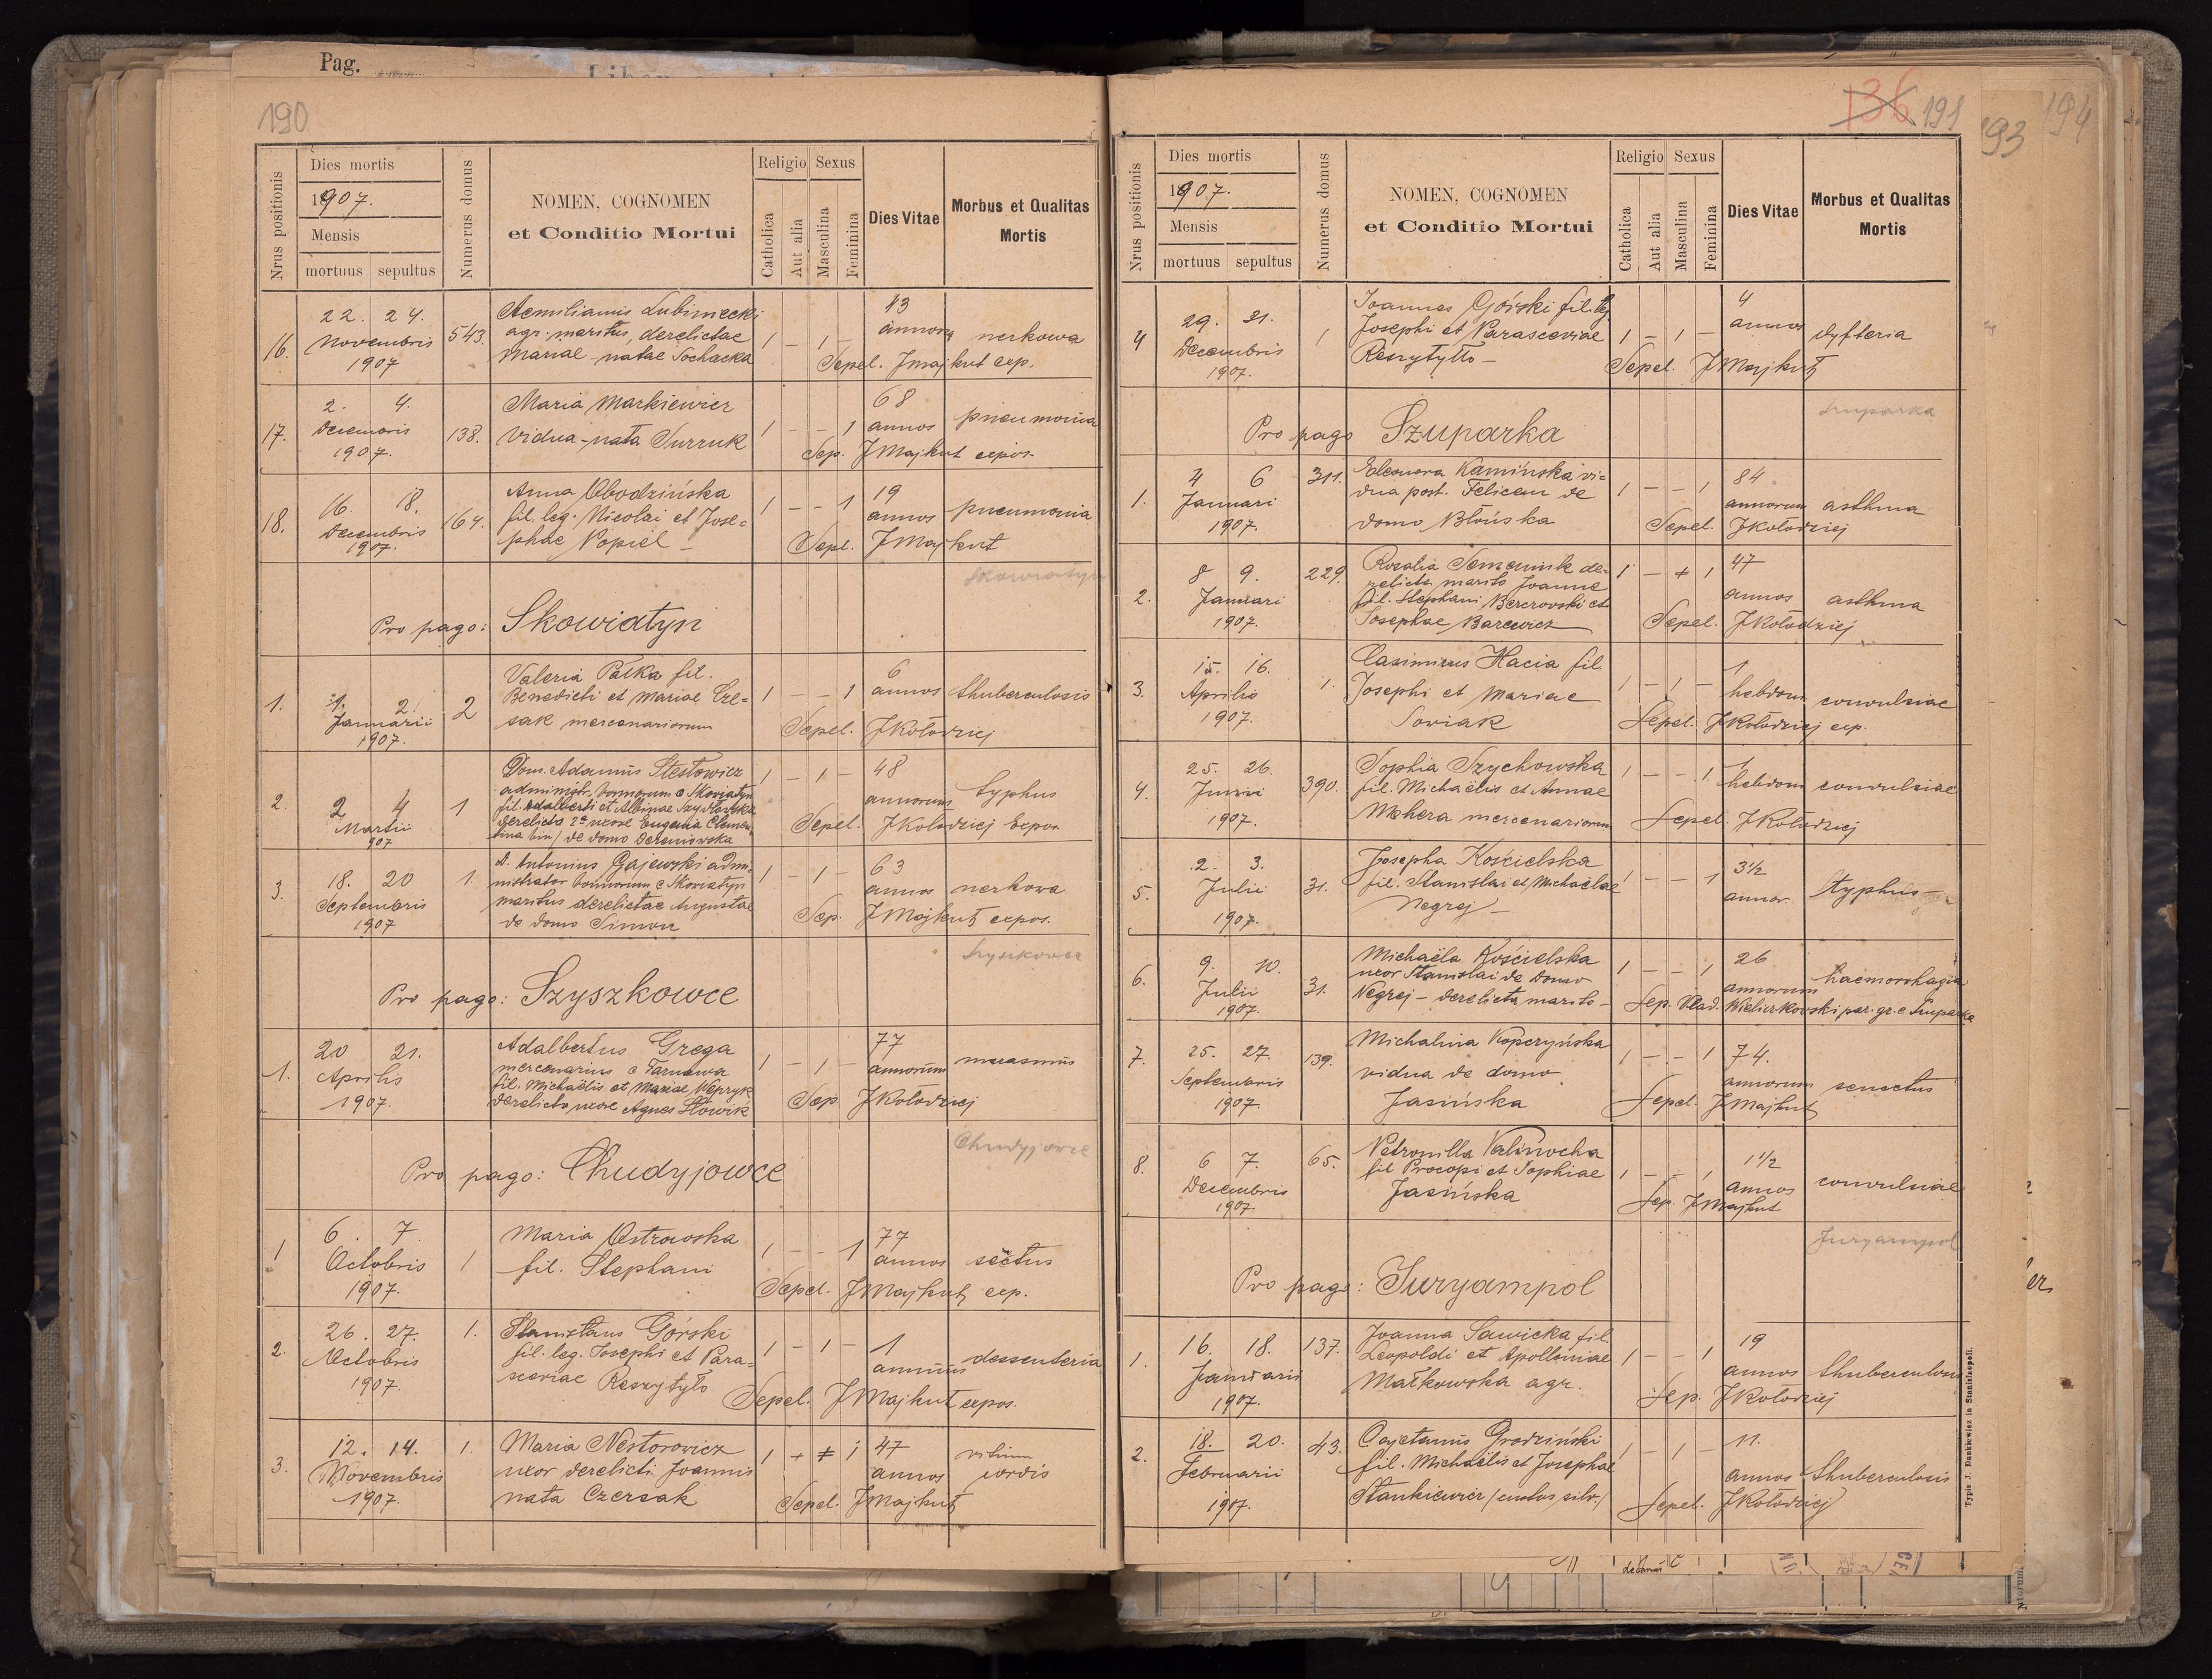 Pag.
190
Nrus positionis
Dies mortis
1907.
Mensis
mortuus sepultus
Numerus domus
NOMEN, COGNOMEN
et Conditio Mortui
Religio Sexus
Catholica
Aut alia
Masculina
Feminina
Dies Vitae
Morbus et Qualitas
Mortis
16. 22. 24.
Novembris
1907
543.
Aemilianus Lubiniecki
agr. maritus, derelictae
Mariae natae Sochacka
1 – 1 –
43
annorum nerkowa
Sepel. JMajkut exp.
17. 2. 4.
Decembris
1907.
138.
Maria Markiewicz
vidua – nata Surruk
1 – – 1
68
annos pneumonia
Sep. JMajkut expos.
18. 16. 18.
Decembris
1907.
164.
Anna Obodzińska
fil. leg. Nicolai et Jose=
phae Popiel –
1 – – 1
19
annos pneumonia
Sepl. JMajkut
Skowiatyn
Pro pago: Skowiatyn
1. 1. 2.
Januarii
1907.
2
Valeria Pałka fil.
Benedicti et Mariae Cze=
sak mercenariorum
1 – – 1
6
annos thuberculosis
Sepel. JKołodziej
2. 2 4
Martii
907
1
Dom. Adamus Stestowicz
administr. bonnorum e Skowiatyn
fil. Adalberti et Albinae
derelicto 2ª uxore Eugenia Clemen
tina de domo Dereniowska
1 – 1 –
48
annorum typhus
Sepel. JKołodziej Expos
3. 18. 20
Septembris
1907
1.
D. Antonius Gajewski admi-
nistrator bonnorum e Skowiatyn
maritus derelictae Augustae
de domo Simon
1 – 1 –
63
annos nerkowa
Sep. JMajkut expos.
Szyszkowce
Pro pago: Szyszkowce
1. 20 21.
Aprilis
1907.
Adalbertus Grega
mercenarius e Tarnawa
fil. Michaëlis et Mariae Weprzyk
derelicto uxore Agnes Słowik
1 – 1 –
77
annorum marasmus
Sep JKołodziej
Chudyjowce
Pro pago: Chudyjowce
1 6. 7
Octobris
1907.
1
Maria Ostrowska
fil. Stephani
1 – – 1
77
annos sectus
Sepel. JMajkut exp.
2. 26. 27.
Octobris
1907.
1.
Stanislaus Górski
fil. leg. Josephi et Para=
sceviae Reszytyło
1 – 1 –
1
annus dessenteria
Sepel. JMajkut expos.
3. 12. 14.
Novembris
1907.
1.
Maria Nestorowicz
uxor derelicti Joannis
nata Czersak
1 + ≠ 1
47
annos vitium
cordis
Sepel. JMajkut
136 191
193
194
Nrus positionis
Dies mortis
1907.
Mensis
mortuus sepultus
Numerus domus
NOMEN, COGNOMEN
et Conditio Mortui
Religio Sexus
Catholica
Aut alia
Masculina
Feminina
Dies Vitae
Morbus et Qualitas
Mortis
4 29. 31.
Decembris
1907.
1
Joannes Górski fil. leg
Josephi et Parasceviae
Reszytyłło –
1 – 1 –
4
annos dyfteria
Sepel. JMajkut
Szuparka
Pro pago Szuparka
1. 4 6
Januari
1907.
311.
Eleonora Kamińska vi=
dua post. Felicem de
domo Błońska
1 – – 1
84
annorum asthma
Sepel. JKołodziej
2. 8 9.
Januari
1907.
229.
Rozalia Semeniuk de=
relicto marito Joanne
fil. Stephani Berezovski et
Josephae Barcewicz
1 – + 1
47
annos asthma
Sepel. JKołodziej
3. 15. 16.
Aprilis
1907.
1.
Casimirus Hacia fil.
Josephi et Mariae
Sowiak
1 – 1 –
1
hebdom convulsiae
Sepel. JKołodziej exp.
4. 25. 26.
Junii
1907.
390.
Sophia Szychowska
fil. Michaëlis et Annae
Mohera mercenariorum
1 – – 1
1
hebdom convulsiae
Sepel. JKołodziej
5. 2. 3.
Julii
1907.
31.
Josepha Kościelska
fil. Stanislai et Michaëlae
Negrej –
1 – – 1
3½
annor. typhus
6. 9. 10.
Julii
1907.
31.
Michaëla Kościelska
uxor Stanislai de domo
Negrej – derelicta marito –
1 – – 1
26
annorum haemorrhagia
Sep. Vlad. Wieliczkowski par. gr. e Szuparka
7. 25. 27.
Septembris
1907.
139.
Michalina Kopczyńska
vidua de domo
Jasińska
1 – – 1
74.
annorum senectus
Sepel. JMajkut
8. 6 7.
Decembris
1907.
65.
Petronilla Kalinocha
fil Procopi et Sophiae
Jasińska
1 – – 1
1½
annos convulsiae
Sep. JMajkut
Juryampol
Pro pago: Juryampol
1. 16. 18.
Januaris
1907.
137.
Joanna Sawicka fil.
Leopoldi et Apolloniae
Małkowska agr.
1 – – 1
19
annos thuberculosis
Sep. JKołodziej
2. 18. 20.
Februarii
1907.
43.
Cajetanus Grodziński
fil. Michaëlis et Josephae
Stankiewicz /custos silv/
1 – 1 –
11.
annos thuberculosis
Sepel. JKołodziej
Typis J. Dankiewicz in Stanislaopoli.